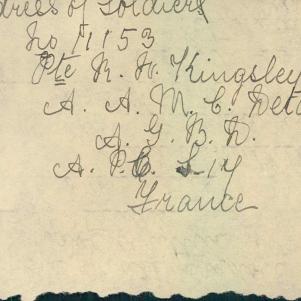 dress of Soldiers
No 11153
Pte R. H. Kingsley
A. A. M. C. Detc
A. G. B. D.
A. P.O. S 17
France